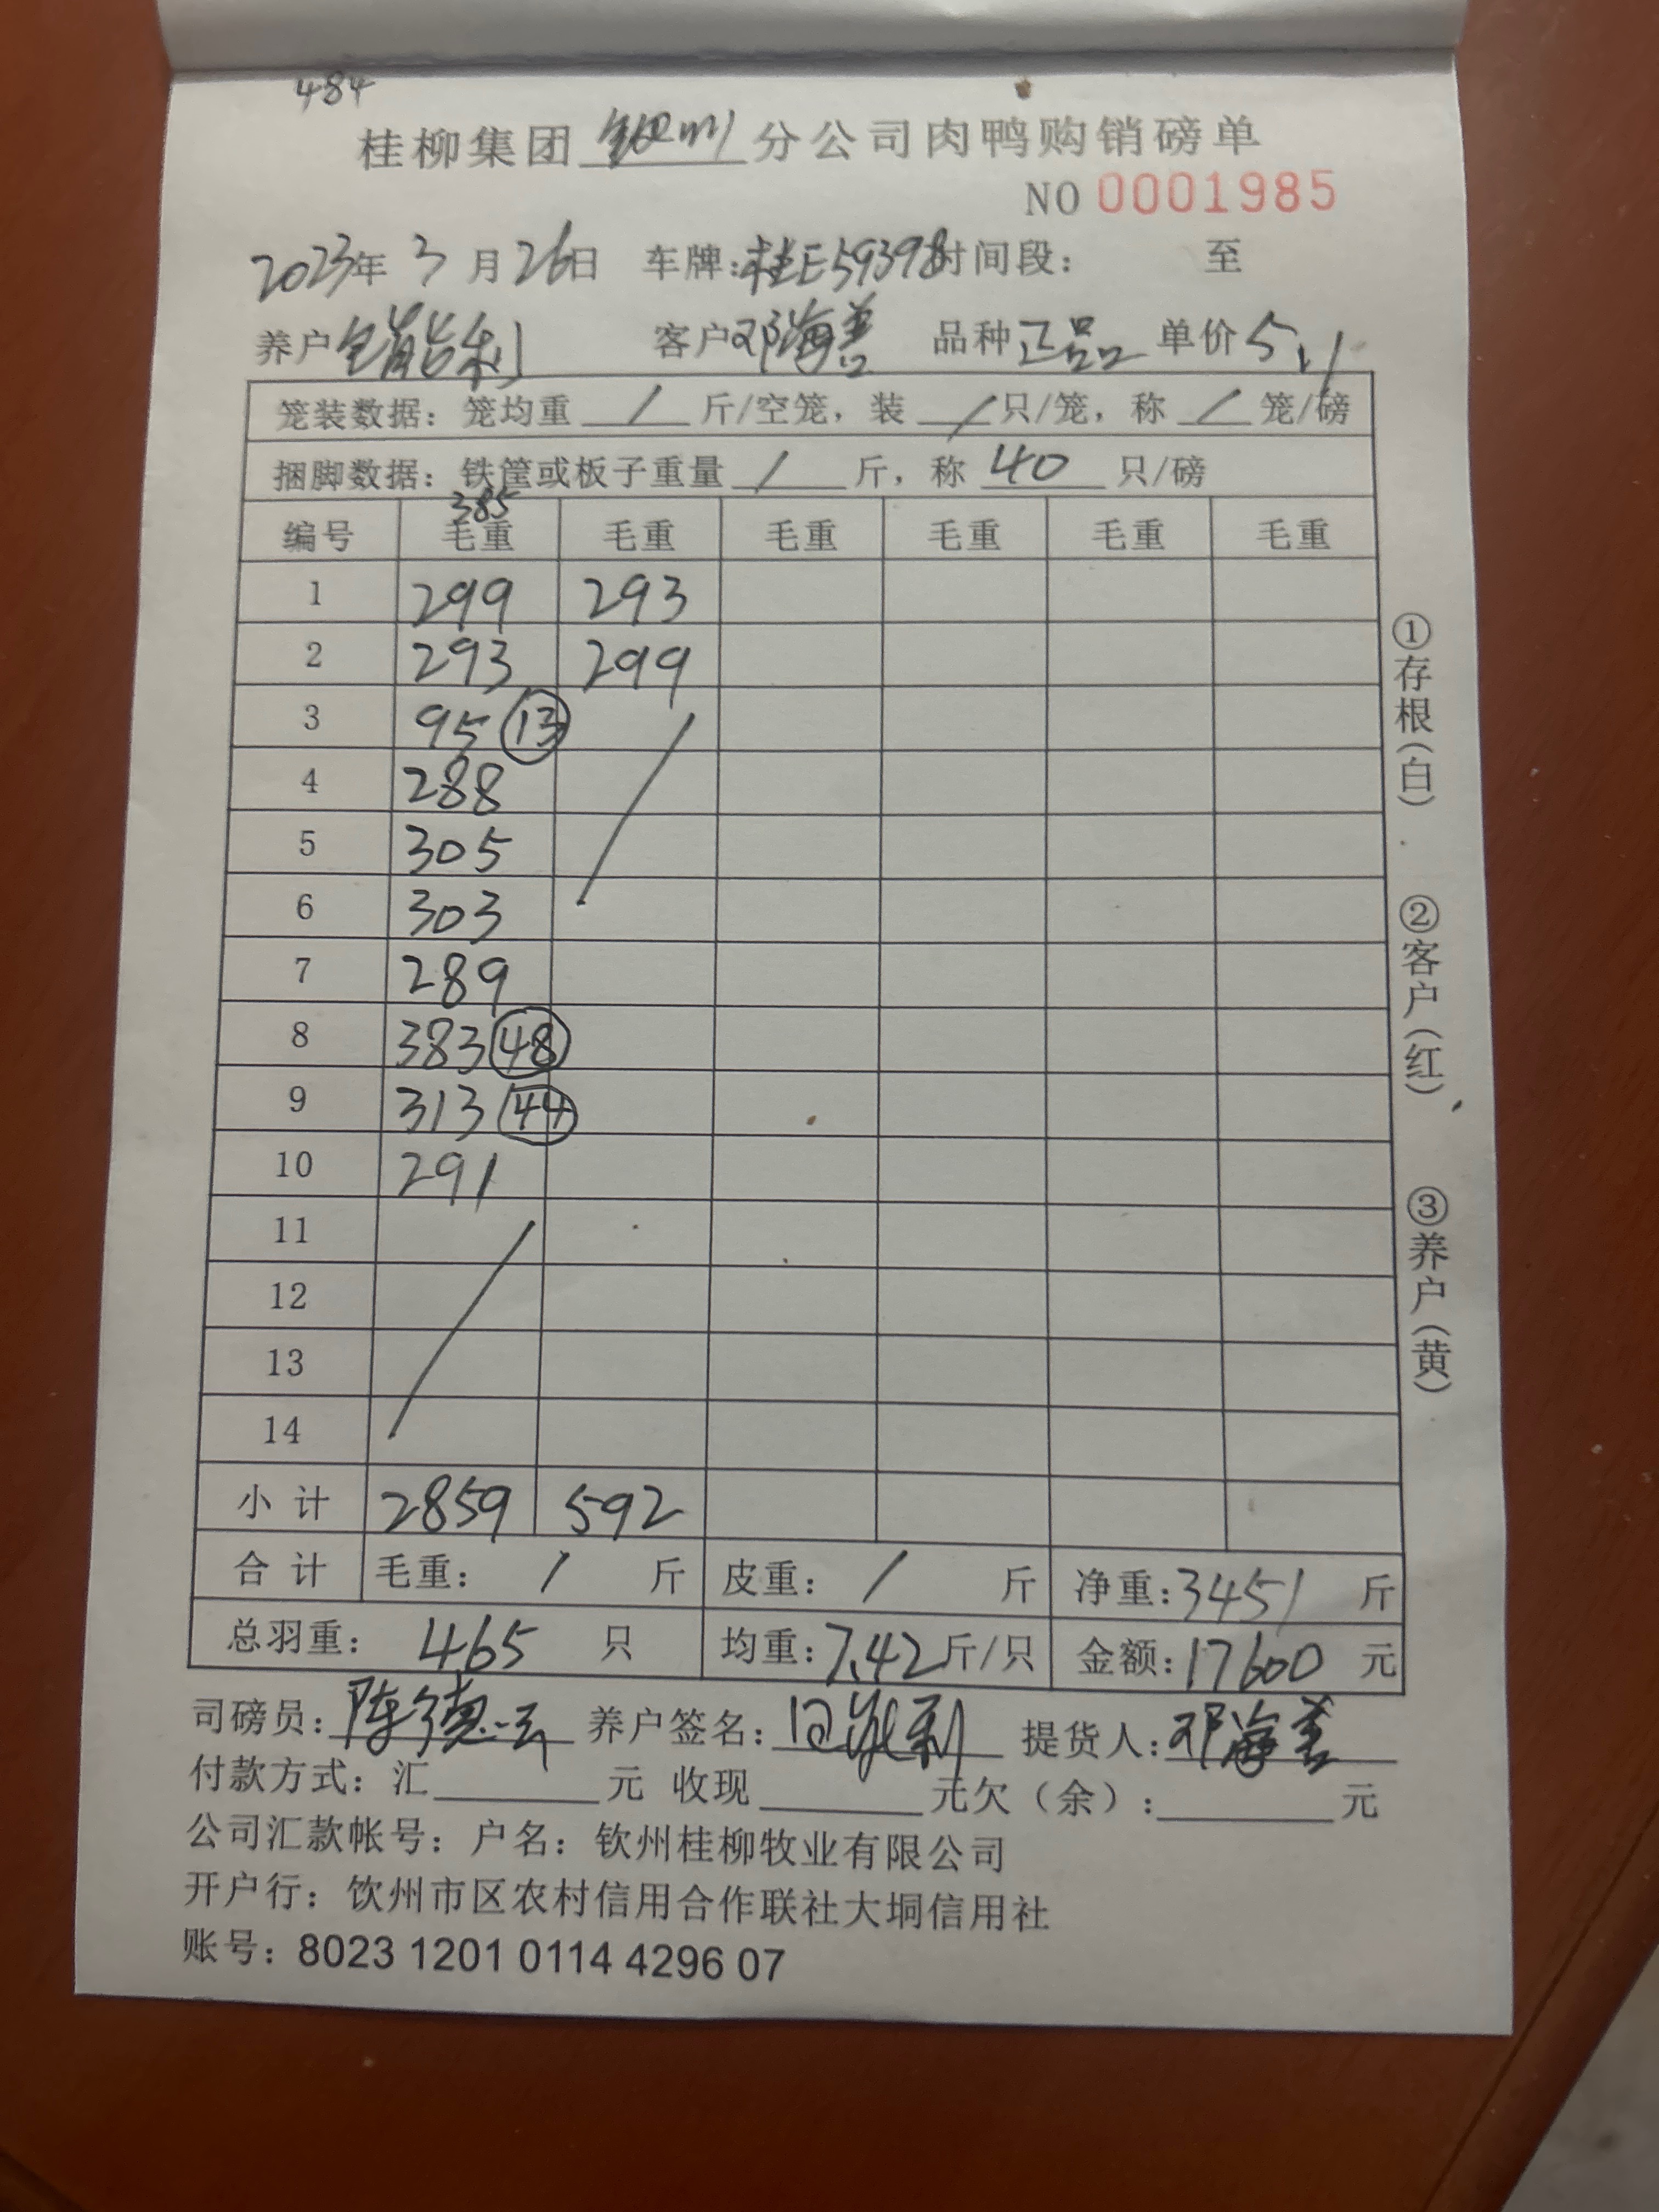 484
桂柳集团 钦州 分公司肉鸭购销磅单
NO 0001985
2023年 3 月 26日 车牌：桂E59398 时间段： 至
养户 能利 客户 邓海善 品种 正品 单价 5.1
笼装数据：笼均重 / 斤/空笼，装 / 只/笼，称 / 笼/磅
捆脚数据：铁筐或板子重量 / 斤，称 40 只/磅
385
编号 毛重 毛重 毛重 毛重 毛重 毛重
1 299 293
2 293 299
3 95 13
4 288
5 305
6 303
7 289
8 383 48
9 313 44
10 291
11
12
13
14
小 计 2859 592
合 计 毛重： / 斤 皮重： / 斤 净重：3451 斤
总羽重： 465 只 均重：7.42斤/只 金额：17600 元
司磅员：陈德云 养户签名： 能利 提货人：邓海善
付款方式：汇 元 收现 元欠（余）： 元
公司汇款帐号：户名：钦州桂柳牧业有限公司
开户行：钦州市区农村信用合作联社大垌信用社
账号：8023 1201 0114 4296 07
①存根（白）
②客户（红）
③养户（黄）